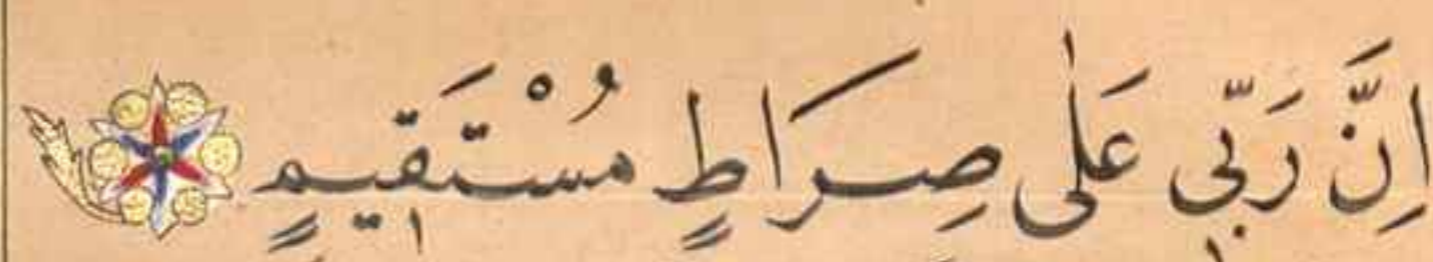 اِنَّ رَبّٖي عَلٰى صِرَاطٍ مُسْتَقٖيمٍ